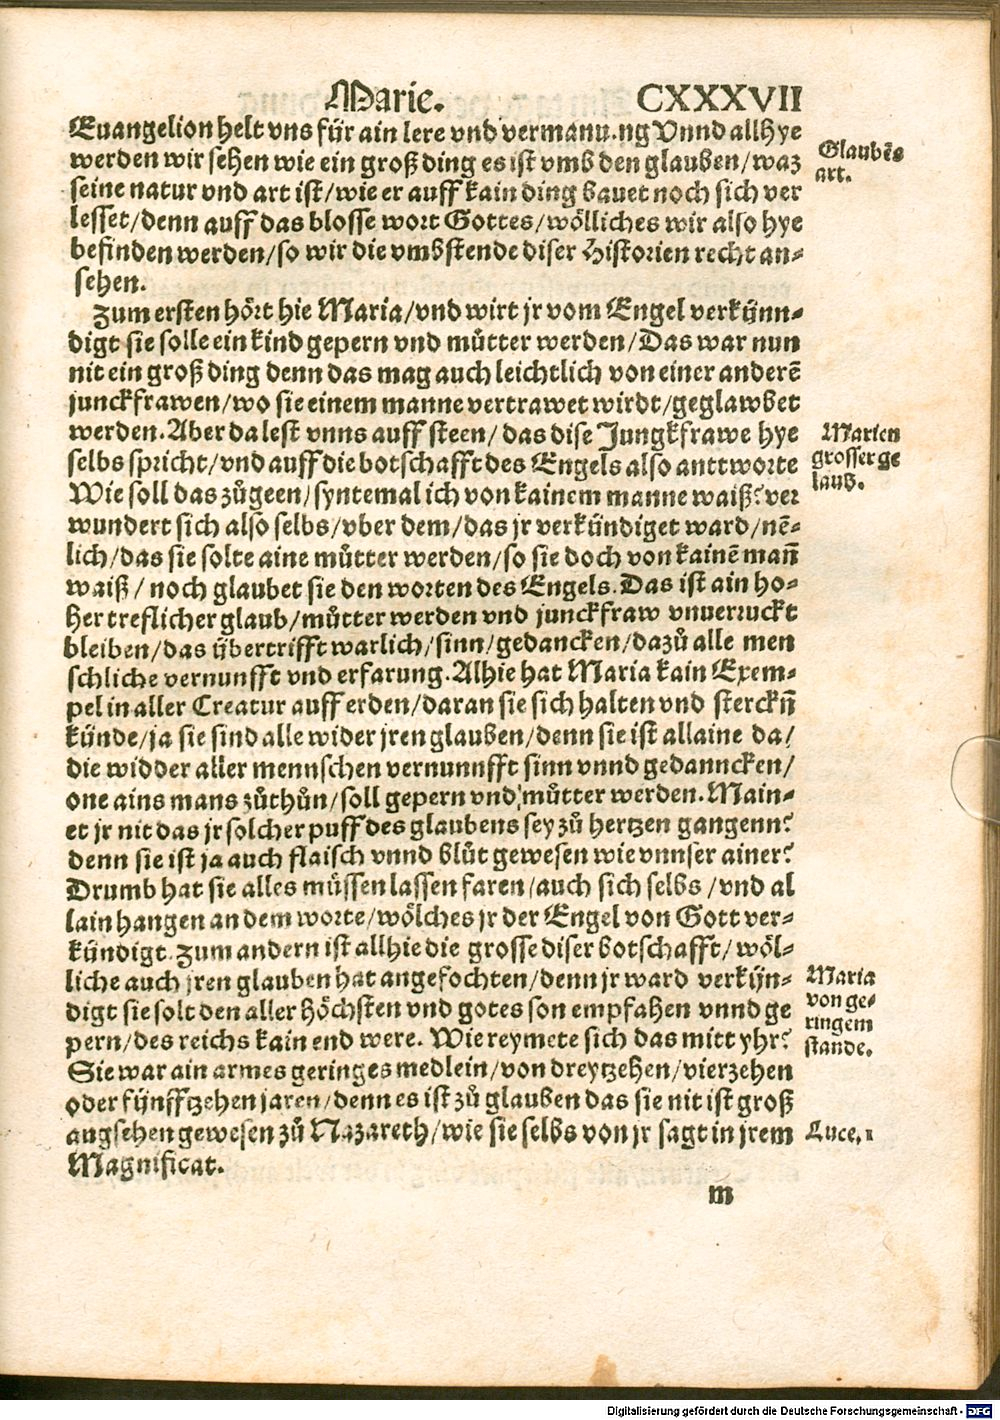 Marie. CXXXVII
Euangelion helt vns für ain lere vnd vermanu.ng Vnnd allhye
werden wir sehen wie ein groß ding es ist vmb den glauben/waz
seine natur vnd art ist/wie er auff kain ding bauet noch sich ver
lesset/denn auff das blosse wort Gottes/wölliches wir also hye
befinden werden/so wir die vmbstende diser Historien recht an⸗
sehen.
Glaubēs
art.
Zum ersten hört hie Maria/vnd wirt jr vom Engel verkünn⸗
digt sie solle ein kind gepern vnd můtter werden/Das war nun
nit ein groß ding denn das mag auch leichtlich von einer anderē
junckfrawen/wo sie einem manne vertrawet wirdt/geglawbet
werden.Aber da lest vnns auff steen/das dise Jungkfrawe hye
selbs spricht/vnd auff die botschafft des Engels also anttworte
Wie soll das zůgeen/syntemal ich von kainem manne waiß?ver
wundert sich also selbs/vber dem/das jr verkündiget ward/nē⸗
lich/das sie solte aine můtter werden/so sie doch von kainē man̄
waiß/noch glaubet sie den worten des Engels.Das ist ain ho⸗
her treflicher glaub/můtter werden vnd junckfraw vnuerruckt
bleiben/das übertrifft warlich/sinn/gedancken/dazů alle men
schliche vernunfft vnd erfarung.Alhie hat Maria kain Exem⸗
pel in aller Creatur auff erden/daran sie sich halten vnd sterckn̄
künde/ja sie sind alle wider jren glauben/denn sie ist allaine da/
die widder aller mennschen vernunnfft sinn vnnd gedanncken/
one ains mans zůthůn/soll gepern vnd můtter werden.Main⸗
et jr nit das jr solcher puff des glaubens sey zů hertzen gangenn?
denn sie ist ja auch flaisch vnnd blůt gewesen wie vnnser ainer?
Drumb hat sie alles müssen lassen faren/auch sich selbs/vnd al
lain hangen an dem worte/wölches jr der Engel von Gott ver⸗
kündigt.Zum andern ist allhie die grosse diser botschafft/wöl⸗
liche auch jren glauben hat angefochten/denn jr ward verkün⸗
digt sie solt den aller höchsten vnd gotes son empfahen vnnd ge
pern/des reichs kain end were. Wie reymete sich das mitt yhr?
Sie war ain armes geringes medlein/von dreytzehen/vierzehen
oder fünfftzehen jaren/denn es ist zů glauben das sie nit ist groß
angsehen gewesen zů Nazareth/wie sie selbs von jr sagt in jrem
Magnificat.
Marien
grosser ge
laub.
Maria
von ge⸗
ringem
stande.
Luce.1
m
Digitalisierung gefördert durch die Deutsche Forschungsgemeinschaft - DFG